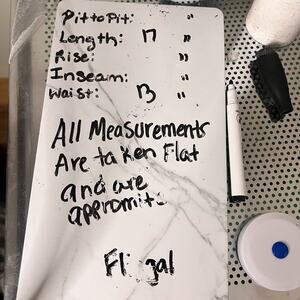 Pit to Pit: "
Length: 17 "
Rise: "
Inseam: "
Waist: 13 "
All Measurements
Are taken Flat
and are